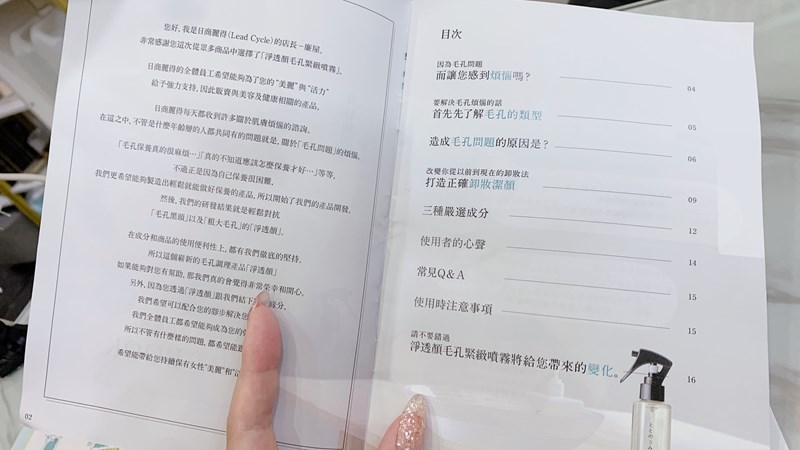 您好，我是日商麗得（Lead Cycle）的店長－廉屋。
非常感謝您這次從眾多商品中選擇了「淨透顏毛孔緊緻噴霧」。
日商麗得的全體員工希望能夠為了您的"美麗"與"活力"
給予強力支持，因此販賣與美容及健康相關的產品。
日商麗得每天都收到許多關於肌膚煩惱的諮詢。
在這之中，不管是什麼年齡層的人都共同有的問題就是，關於「毛孔問題」的煩惱。
「毛孔保養真的很麻煩…」「真的不知道應該怎麼保養才好…」等等，
不過正是因為自己保養很困難，
我們更希望能夠製造出輕鬆就能做好保養的產品，所以開始了我們的產品開發。
然後，我們的研發結果就是輕鬆對抗
「毛孔黑頭」以及「粗大毛孔」的「淨透顏」。
在成分和商品的使用便利性上，都有我們徹底的堅持。
所以這個嶄新的毛孔調理產品「淨透顏」
如果能夠對您有幫助，那我們真的會覺得非常榮幸和開心。
另外，因為您透過「淨透顏」跟我們結下 緣分，
我們希望可以配合您的腳步解決您
我們全體員工都希望能夠成為您的
所以不管有什麼樣的問題，都希望能
希望能帶給您持續保有女性"美麗"和"活
02
目次
因為毛孔問題
而讓您感到煩惱嗎？ 04
要解決毛孔煩惱的話
首先先了解毛孔的類型 05
造成毛孔問題的原因是？ 06
改變你從以前到現在的卸妝法
打造正確卸妝潔顏 09
三種嚴選成分 12
使用者的心聲 14
常見Q＆A 15
使用時注意事項 15
請不要錯過
淨透顏毛孔緊緻噴霧將給您帶來的變化。 16